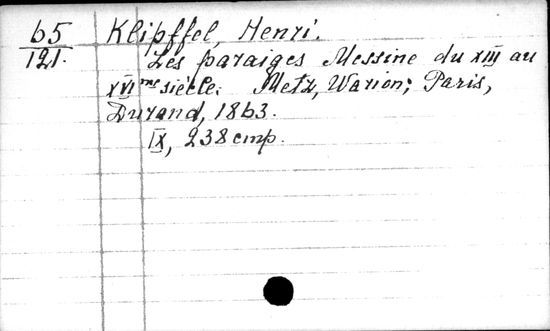 65
121.
Klipffel, Henri.
Les paraiges Messine du XIII au
XVIme siècle. Metz, Warion; Paris,
Durand, 1863.
IX, 238 cmp.